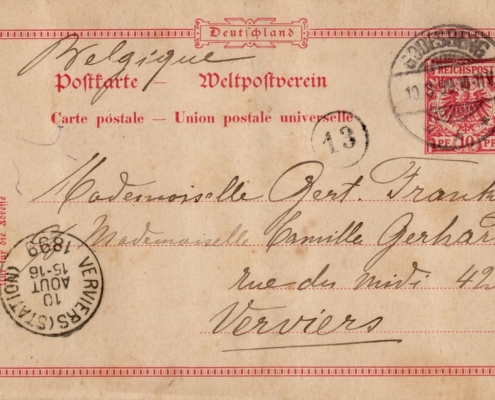 Deutschland
Belgique
GODESBERG
REICHSPOST
10 PF
Postkarte — Weltpostverein
Carte postale — Union postale universelle
13
Mademoiselle Gert. Frank
Mademoiselle Camille Gerhar
rue du midi 42
Verviers
VERVIERS (STATION)
10
AOUT
15-16
1899
für die Adresse